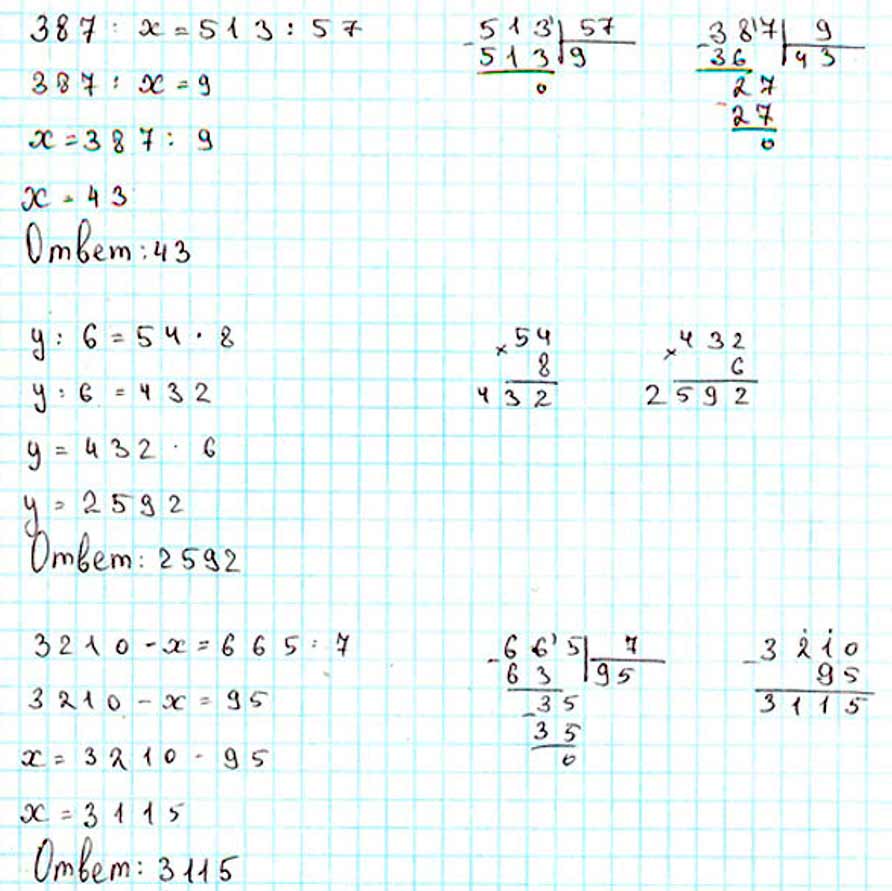 387 : x = 513 : 57
387 : x = 9
x = 387 : 9
x = 43
Ответ: 43
513 | 57
513 | 9
0
387 | 9
36 | 43
27
27
0
y : 6 = 54 · 8
y : 6 = 432
y = 432 · 6
y = 2592
Ответ: 2592
× 54
8
432
× 432
6
2592
3210 - x = 665 : 7
3210 - x = 95
x = 3210 - 95
x = 3115
Ответ: 3115
- 665 | 7
63 | 95
- 35
35
0
- 3210
95
3115